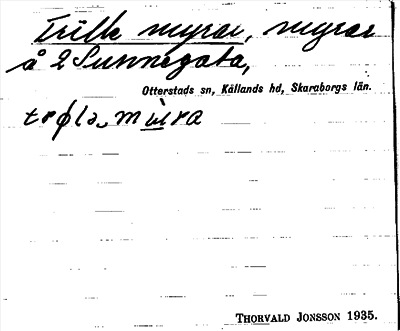 Trille myrar, myrar
å 2 Sunnegata,
Otterstads sn, Kållands hd, Skaraborgs län.
Thorvald Jonsson 1935.